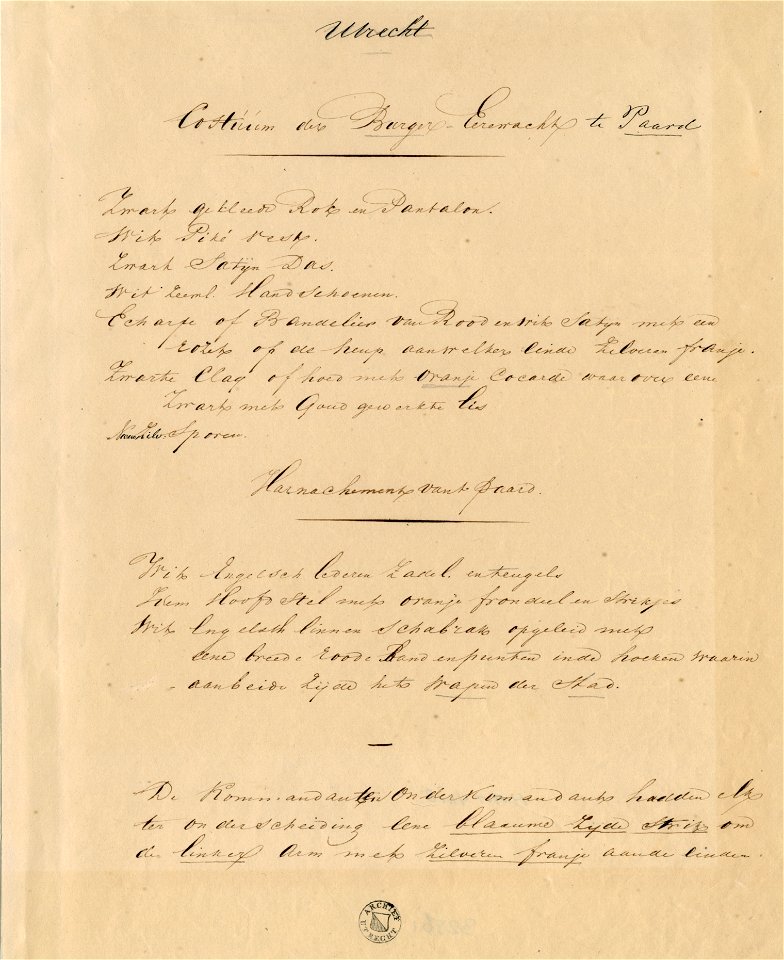 Utrecht
Costuum der Burger-Eerewacht te Paard
Zwart gekleede Rok en Pantalon.
Wit Piké vest.
Zwart Satijn Das.
Wit Zeeml. Handschoenen.
Echarpe of Bandelier van Rood en wit Satijn met een
rozet op de heup aan welker einde Zilveren franje.
Zwarte Claq of hoed met oranje Cocarde waarover eene
Zwart met Goud gewerkte lis
Nieuw Zilv. Sporen.
Harnachement van't Paard.
Wit Engelsch lederen Zadel en teugels
Idem Hoofdstel met oranje frondeel en Strikjes
Wit Engelsch linnen schabrak opgeleid met
eene breede roode Band en punten in de hoeken waarin
aan beide zijde het Wapen der Stad.
De Kommandant en Onderkommandant hadden elk
ter onderscheiding eene blaauwe Zijde Strik om
den linker Arm met Zilveren franje aan de einden.
ARCHIEF UTRECHT